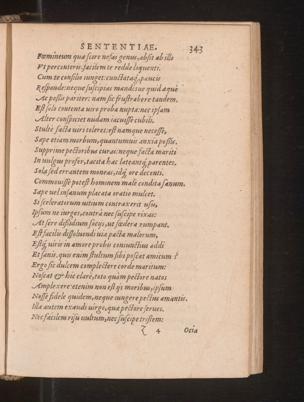 SENTENTIAE. 343
Fœmineum qua scire nefas genus, absit ab illo
Vt percunteris: facilem te redde loquenti.
Cum te consilio iunget: cunctataq́; paucis
Responde: neque suscipias mandatus quid aquè
Ac possis pariter: nam sic frustrabere tandem.
Est solo contenta uiro proba nupta: nec ipsam
Alter conspiciet nudam iacuisse cubili.
Stulte facta uiri toleres: est namque necesse,
Sape etenim morbum, quantumuis anxia possis.
Supprime pectoribus curas: neque facta mariti
In uulgus profer, tacita hac lateantq́; parentes.
Sola sed errantem moneas, idq́; ore decenti.
Commouisse potest hominem male condita sanum.
Sape uel insanum placata oratio mulcet.
Si sceleratorum uitium contraxerit usu,
Ipsum ne iurges, contrà nec suscipe rixas:
At fere dissidium fucis, ut fœdera rumpant.
Est facilis dissoluendi uia pacta malorum,
Estq́; uiris in amore probis coniunctius addi
Et sanis, quis enim stultum sibi poscat amicum?
Ergo sic dulcem complectere corde maritum:
Noscat &
Amplexere: etenim non est is moribus, ipsum
Nosse fidele quidem, neque iungere pectus amantis.
Illa autem exaudi uirgo, qua pectore serues.
Nec facilem risu multum, nec suscipe tristem:
4 Ocia